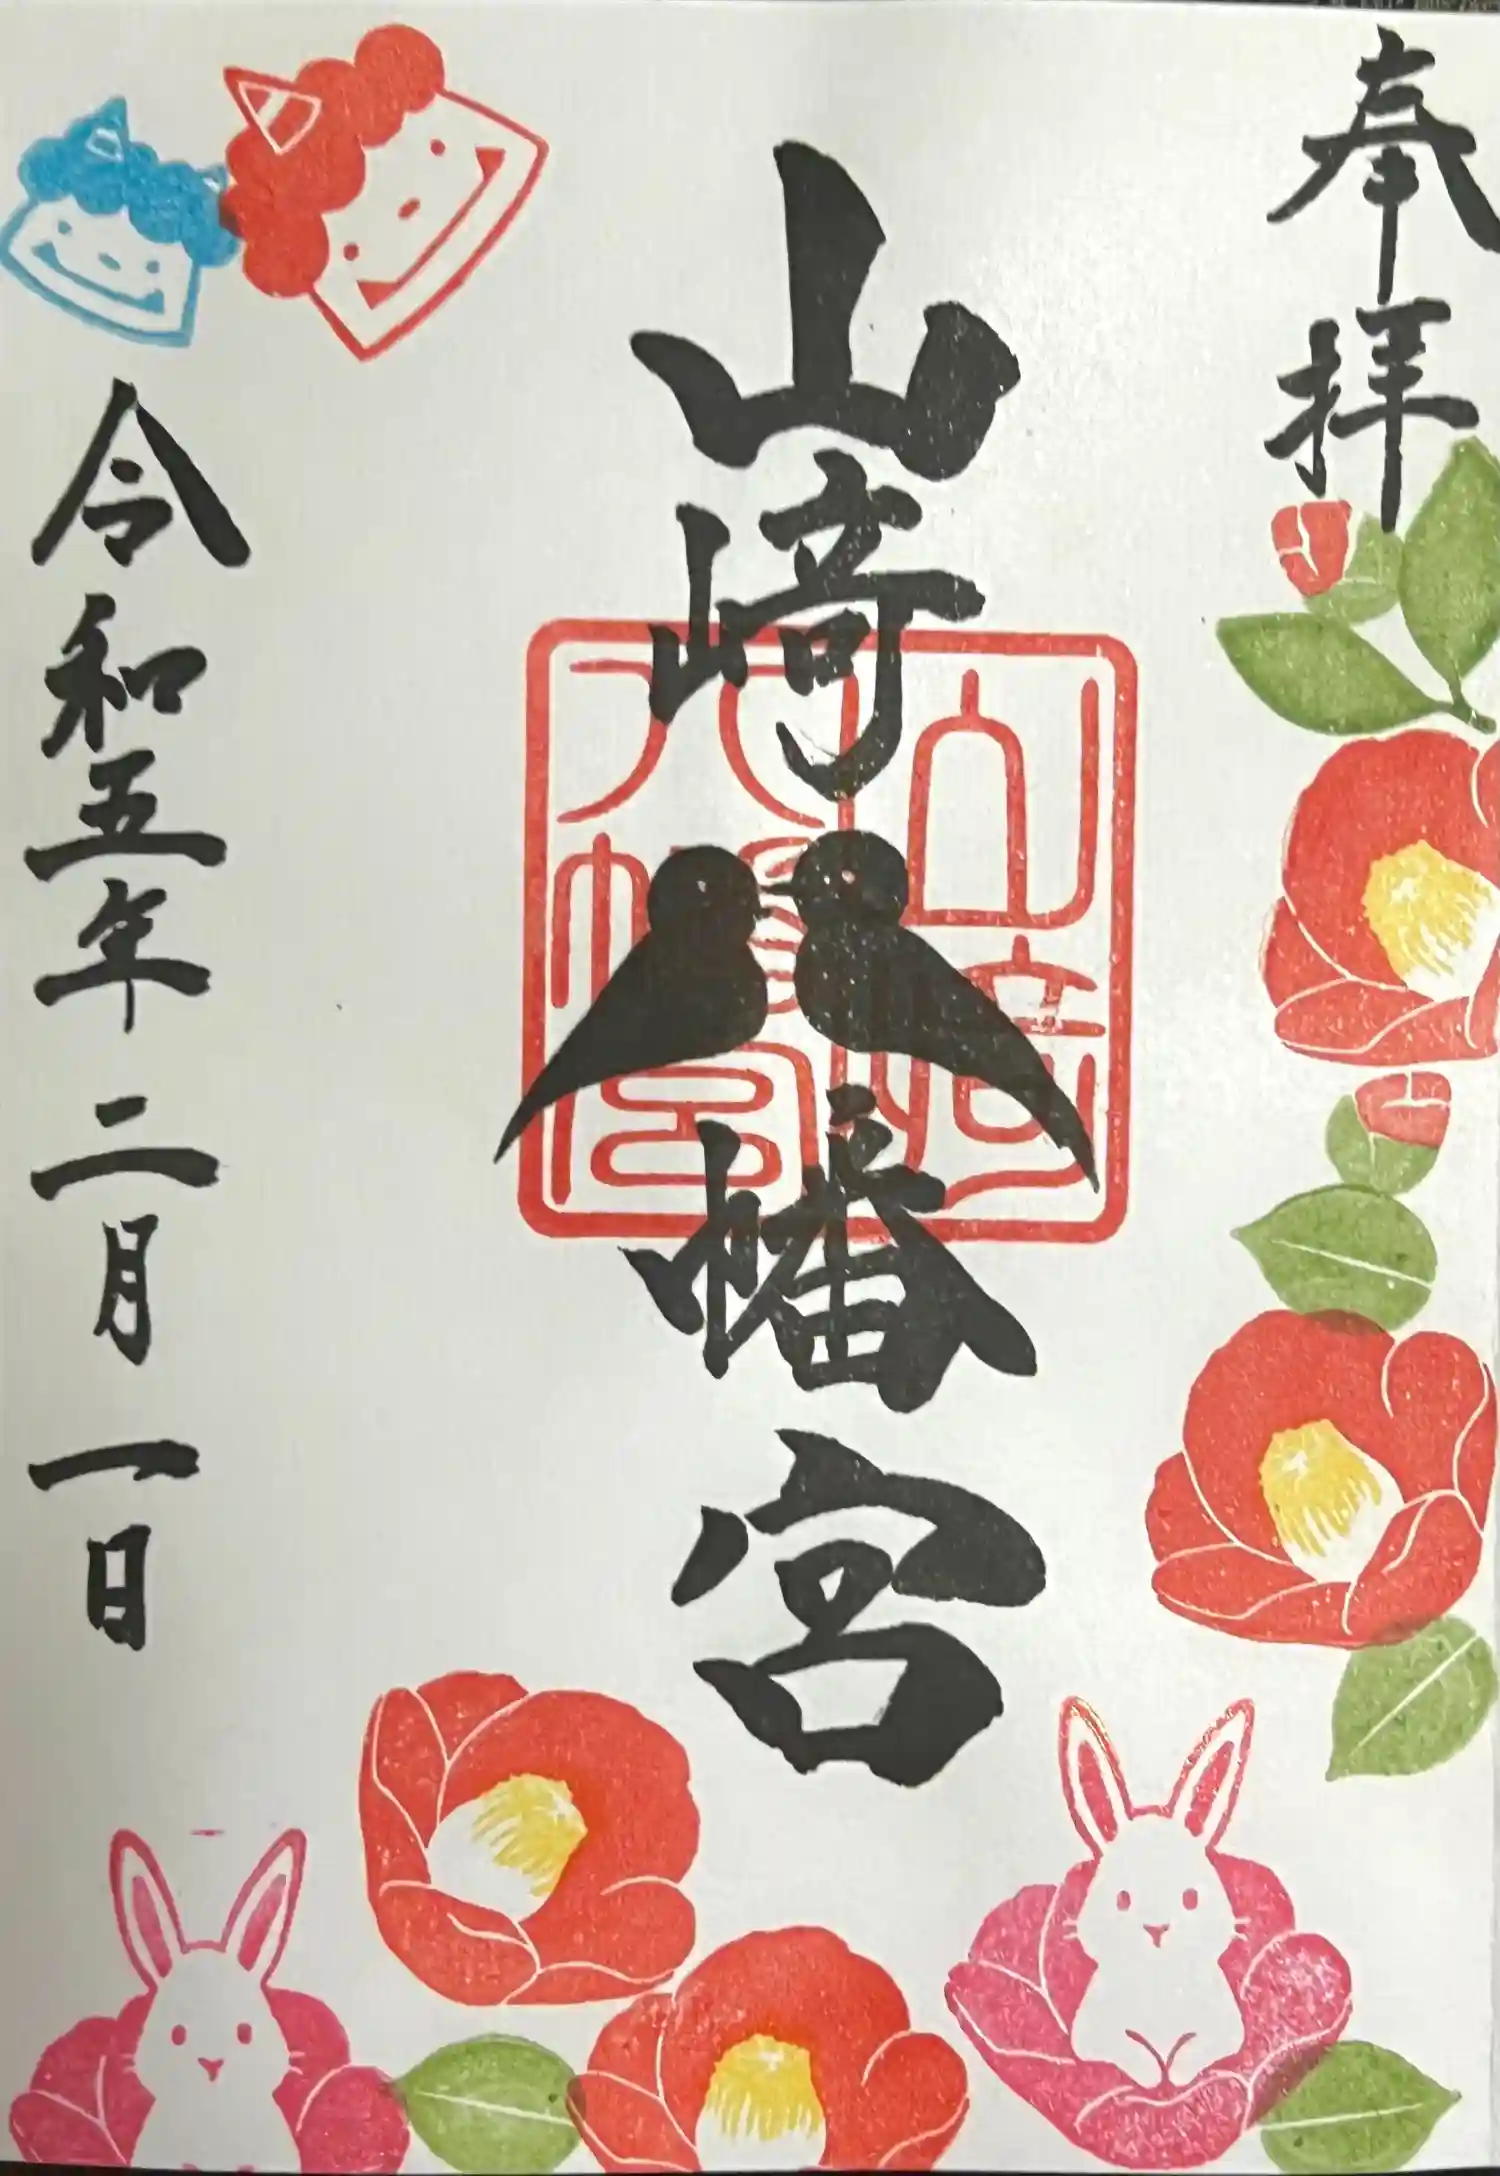 奉拝
山﨑八幡宮
山﨑八幡宮
令和五年二月一日